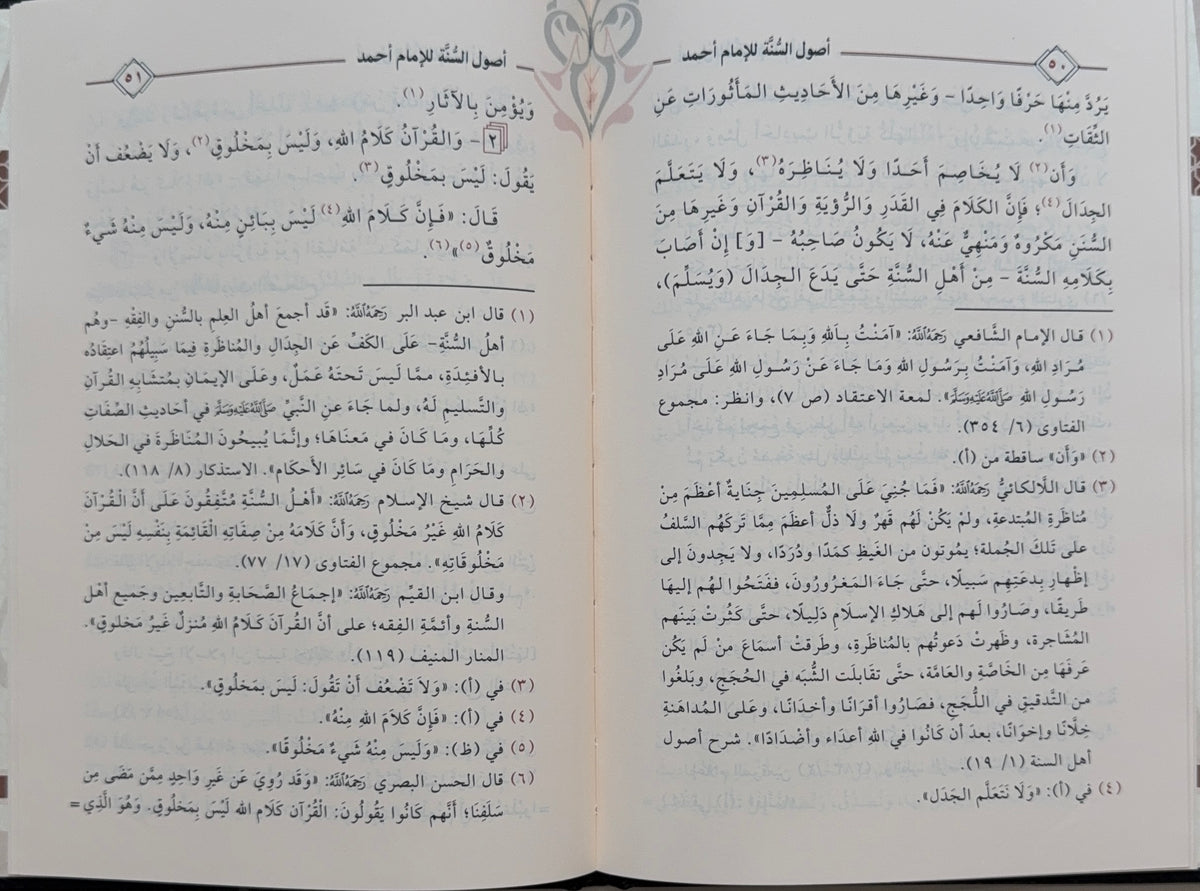 أصول السُّنَّة للإمام أحمد
٥٠
يَرُدَّ مِنْهَا حَرْفًا وَاحِدًا - وَغَيْرِهَا مِنَ الأَحَادِيثِ المَأْثُورَاتِ عَنِ
الثِّقَاتِ(١).
وَأَن(٢) لَا يُخَاصِمَ أَحَدًا وَلَا يُنَاظِرَهُ(٣)، وَلَا يَتَعَلَّمَ
الجِدَالَ(٤)؛ فَإِنَّ الكَلَامَ فِي القَدَرِ وَالرُّؤْيَةِ وَالقُرْآنِ وَغَيرِهَا مِنَ
السُّنَنِ مَكْرُوهٌ وَمَنْهِيٌّ عَنْهُ، لَا يَكُونُ صَاحِبُهُ - [وَ] إِنْ أَصَابَ
بِكَلَامِهِ السُّنَّةَ - مِنْ أَهْلِ السُّنَّةِ حَتَّى يَدَعَ الجِدَالَ (وَيُسَلِّمَ)،
(١) قال الإمام الشَّافعي رَحِمَهُ اللَّهُ: «آمَنْتُ بِاللهِ وَبِمَا جَاءَ عَنِ اللهِ عَلَى
مُرَادِ اللهِ، وَآمَنْتُ بِرَسُولِ اللهِ وَمَا جَاءَ عَنْ رَسُولِ اللهِ عَلَى مُرَادِ
رَسُولِ اللهِ صَلَّى اللَّهُ عَلَيْهِ وَسَلَّمَ». لمعة الاعتقاد (ص ٧)، وانظر: مجموع
الفتاوى (٦/ ٣٥٤).
(٢) «وَأَن» ساقطة من (أ).
(٣) قال اللَّالكائيُّ رَحِمَهُ اللَّهُ: «فَمَا جُنِيَ عَلَى المُسلِمِينَ جِنَايةٌ أعظَمَ مِنْ
مُناظَرةِ المُبتدعةِ، ولمْ يَكُنْ لَهُم قَهرٌ ولَا ذِلٌّ أعظَمَ مِمَّا تَرَكَهُم السَّلفُ
على تَلكَ الجُملةِ؛ يمُوتونَ من الغَيظِ كمَدًا ودُرَدًا، ولا يَجِدونَ إلى
إظْهارِ بِدعَتِهم سَبيلًا، حتَّى جَاءَ المَغرُورُونَ، ففَتَحُوا لهُم إليهَا
طَريقًا، وصَارُوا لَهم إلى هَلاكِ الإسلَامِ دَلِيلًا، حتَّى كَثُرتْ بَينَهم
المُشَاجرة، وظَهرتْ دَعوتُهم بالمُناظرةِ، وطَرقتْ أسمَاعَ مَنْ لَم يَكُن
عَرفَها مِن الخَاصَّةِ والعَامَّة، حتَّى تقابلَت الشُّبه في الحُجَجِ، وبَلغُوا
من التَّدقيقِ في اللُّججِ، فصَارُوا أقرَانًا وأخدَانًا، وعلَى المُداهنةِ
خِلَّانًا وإخوَانًا، بعدَ أن كَانُوا في اللهِ أعدَاء وأضْدَادًا». شرح أصول
أهل السنة (١/ ١٩).
(٤) في (أ): «وَلَا نَتَعَلَّم الجَدَل».
أصول السُّنَّة للإمام أحمد
٥١
وَيُؤْمِنَ بِالآثَارِ(١).
٢ - وَالقُرْآنُ كَلَامُ اللهِ، وَلَيْسَ بِمَخْلُوقٍ(٢)، وَلَا يَضْعُف أَنْ
يَقُولَ: لَيْسَ بمَخْلُوقٍ(٣).
قَالَ: «فَإِنَّ كَلَامَ اللهِ(٤) لَيْسَ بِبَائِنٍ مِنْهُ، وَلَيْسَ مِنْهُ شَيءٌ
مَخْلُوقٌ(٥)»(٦).
(١) قال ابن عبد البر رَحِمَهُ اللَّهُ: «قَد أجمعَ أهلُ العِلمِ بالسُّننِ والفِقهِ -وهُم
أهلُ السُّنَّةِ- عَلَى الكَفِّ عَن الجِدَالِ والمُناظَرةِ فِيمَا سَبِيلُهُم اعتِقادُه
بالأفئِدَةِ، ممَّا لَيسَ تَحتَهُ عَمَلٌ، وعَلَى الإيمَانِ بمُتشَابهِ القُرآنِ
والتَّسليمِ لَهُ، ولمَا جَاءَ عَن النَّبيِّ صَلَّى اللَّهُ عَلَيْهِ وَسَلَّمَ في أحَاديثِ الصِّفَاتِ
كُلِّهَا، ومَا كَانَ في مَعنَاهَا؛ وإنَّمَا يُبيحُونَ المُنَاظَرةَ في الحَلالِ
والحَرَامِ ومَا كَانَ في سَائِرِ الأحكَامِ». الاستذكار (٨/ ١١٨).
(٢) قال شيخ الإسلام رَحِمَهُ اللَّهُ: «أَهْلُ السُّنَّةِ مُتَّفِقُونَ عَلَى أَنَّ الْقُرْآنَ
كَلَامُ اللهِ غَيْرُ مَخْلُوقٍ، وَأَنَّ كَلَامَهُ مِنْ صِفَاتِهِ الْقَائِمَةِ بِنَفْسِهِ لَيْسَ مِنْ
مَخْلُوقَاتِهِ». مجموع الفتاوى (١٧/ ٧٧).
وقال ابن القيِّم رَحِمَهُ اللَّهُ: «إجمَاعُ الصَّحَابةِ والتَّابعِين وجَميعِ أهْل
السُّنةِ وأئمَّةِ الفِقه؛ على أنَّ القُرآنَ كَلَامُ اللهِ مُنزلٌ غَيرُ مَخلوقٍ».
المنار المنيف (١١٩).
(٣) في (أ): «وَلاَ تَضْعُف أَنْ تَقُولَ: لَيسَ بمَخلُوقٍ».
(٤) في (أ): «فَإِنَّ كَلاَمَ اللهِ مِنْهُ».
(٥) في (ظ): «وَلَيسَ مِنْهُ شَيءٌ مَخْلُوقًا».
(٦) قال الحسن البصري رَحِمَهُ اللَّهُ: «وَقَد رُوِيَ عَن غَيرِ وَاحِدٍ مِمَّن مَضَى مِن
سَلَفِنَا؛ أَنَّهم كَانُوا يَقُولُونَ: الْقُرْآن كَلَام الله لَيْسَ بِمَخلُوقٍ. وَهُوَ الَّذِي =